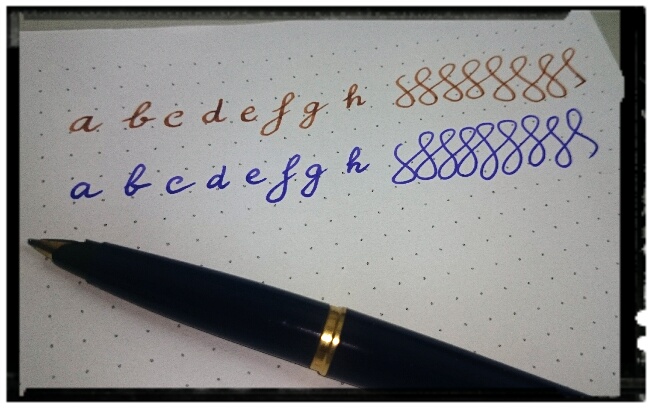 a b c d e f g h
a b c d e f g h